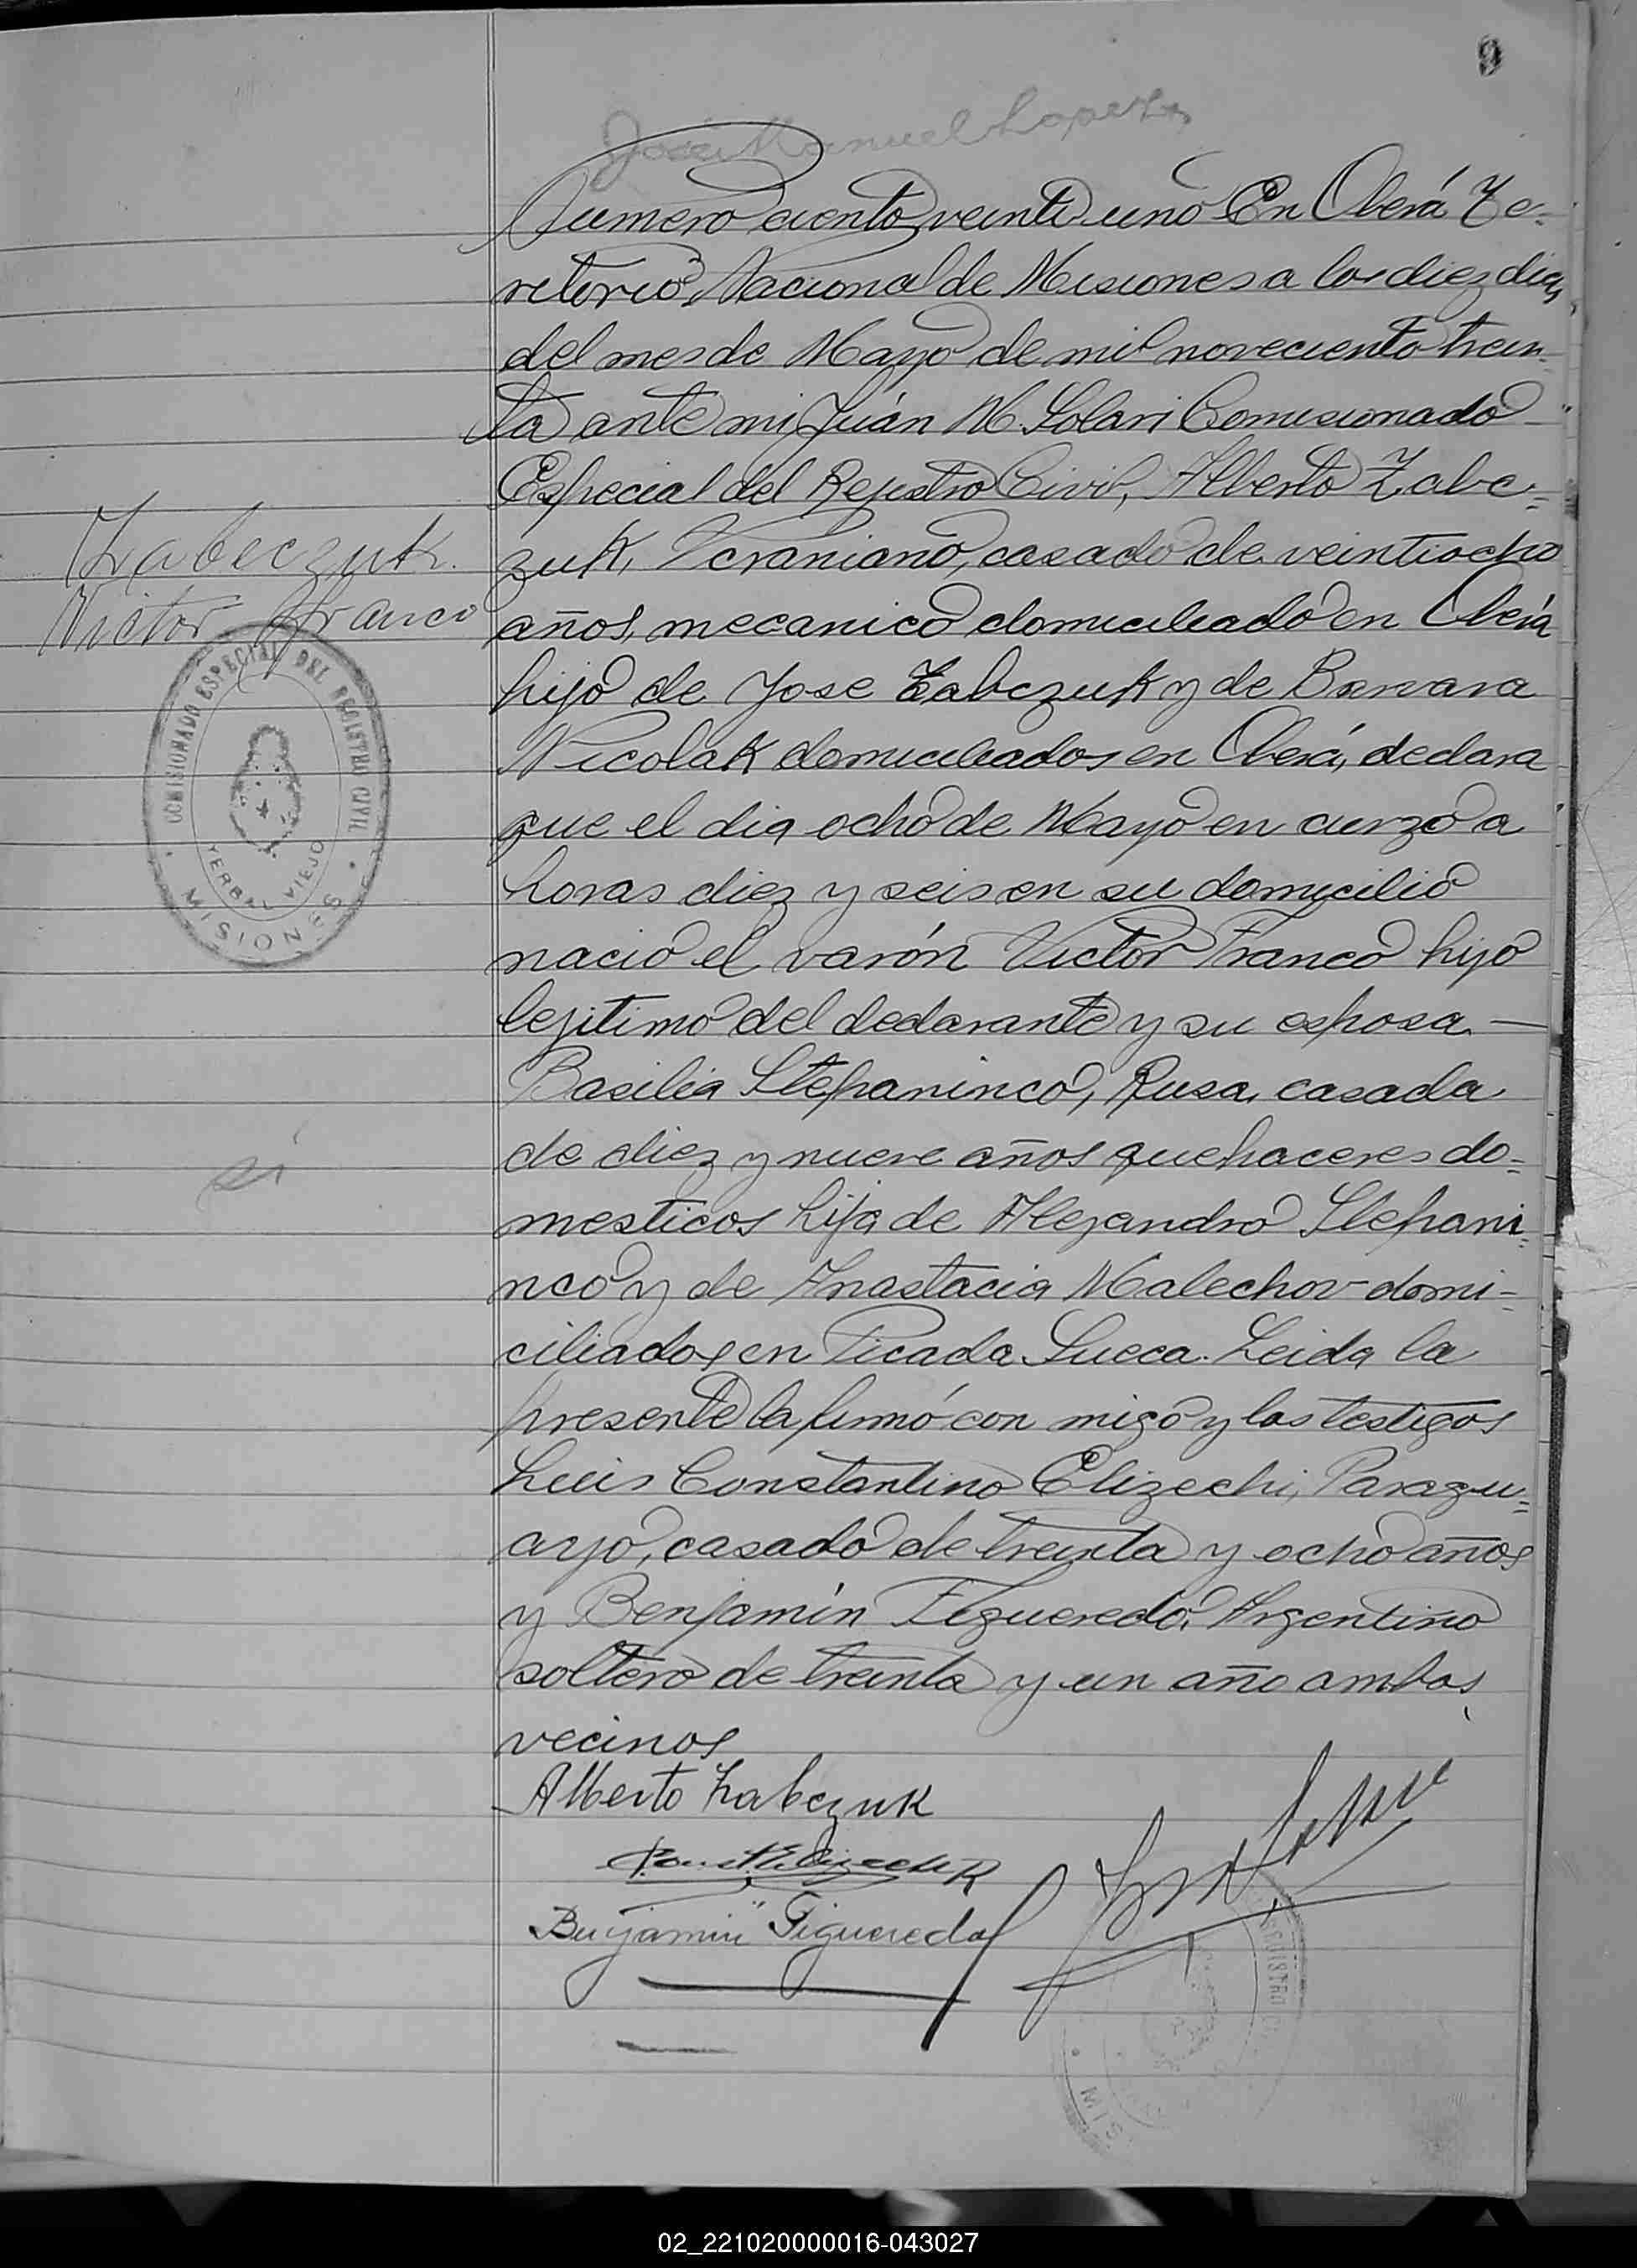 9
José Manuel Lopez
Numero ciento veinti uno En Oberá Te=
ritorio Nacional de Misiones a los diez dias
del mes de Mayo de mil noveciento trein=
ta ante mi Juán M. Solari Comisionado
Especial del Rejistro Civil, Alberto Zabc=
zuk, Ucraniano, casado de veintiocho
años, mecanico domiciliado en Oberá
hijo de Jose Zabczuk y de Barvara
Nicolak domiciliados en Oberá, declara
que el dia ocho de Mayo en curzo a
horas diez y seis en su domicilio
nació el varón Victor Franco hijo
lejitimo del declarante y su esposa —
Basilia Stepaninco, Rusa, casada
de diez y nueve años quehaceres do=
mesticos hija de Alejandro Stepani=
nco y de Anastacia Malechov domi-
ciliados en Picada Sueca. Leida la
presente la firmó con migo y los testigos
Luis Constantino Elizechi, Paragu=
ayo, casado de treinta y ocho años
y Benjamín Figueredo, Argentino
soltero de treinta y un año ambos
vecinos
Alberto Zabczuk
Benjamin Figueredo
Zabczuk.
Victor Franco
COMISIONADO ESPECIAL DEL REGISTRO CIVIL
YERBAL VIEJO
MISIONES
si
REGISTRO C
MIS
02_221020000016-043027